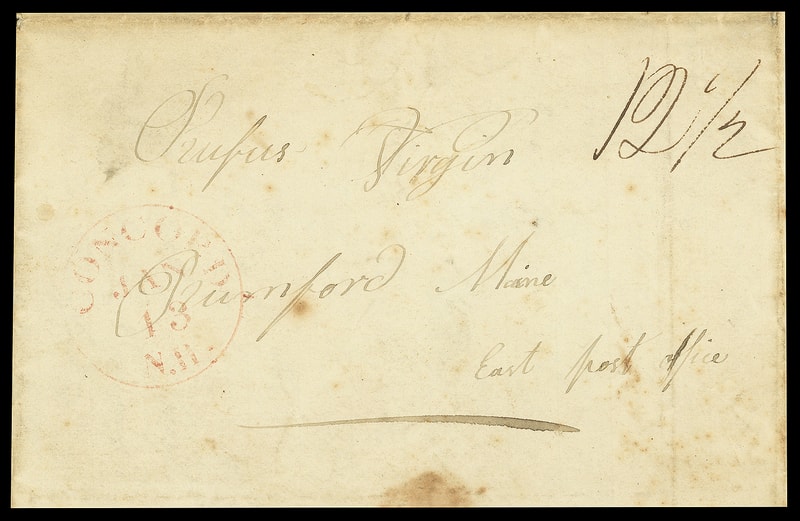 Rufus Virgin
12 1/2
CONCORD
JAN
13
N.H.
Rumford Maine
East post office